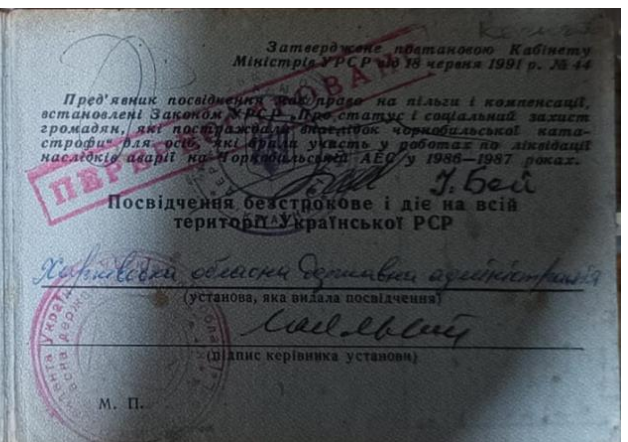 Затверджене постановою Кабінету
Міністрів УРСР від 18 червня 1991 р. № 44
ПЕРЕРЕЄСТРОВАНО
Пред'явник посвідчення має право на пільги і компенсації,
встановлені Законом УРСР „Про статус і соціальний захист
громадян, які постраждали внаслідок чорнобильської ката-
строфи" для осіб, які брали участь у роботах по ліквідації
наслідків аварії на Чорнобильській АЕС у 1986—1987 роках.
Посвідчення безстрокове і діє на всій
території Української РСР
Харківська обласна державна адміністрація
(установа, яка видала посвідчення)
(підпис керівника установи)
М. П.